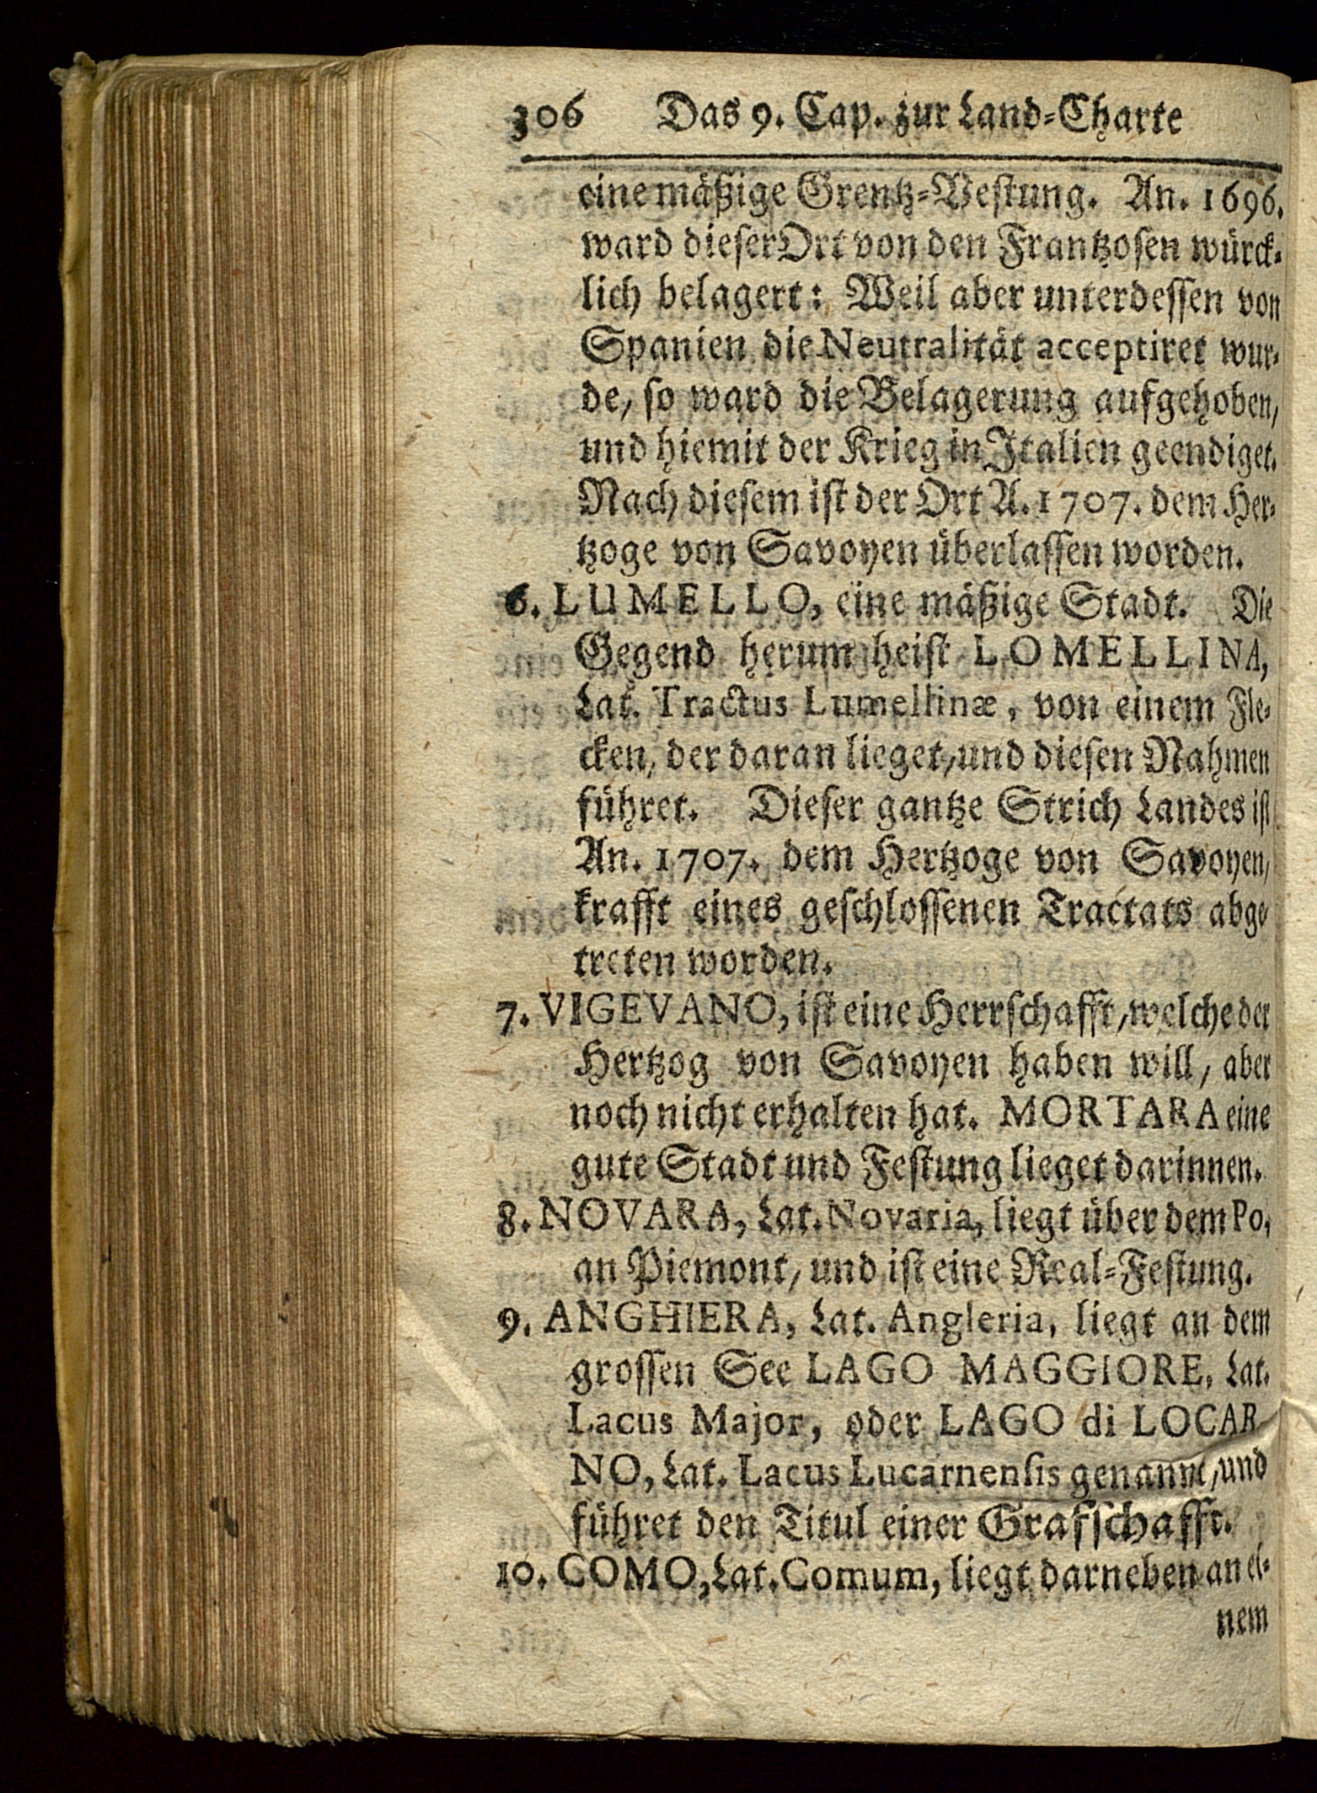 306 Das 9. Cap. zur Land-Charte
eine mäßige Grentz-Vestung. An. 1696.
ward dieser Ort von den Frantzosen würck-
lich belagert: Weil aber unterdessen von
Spanien die Neutralität acceptiret wur-
de, so ward die Belagerung aufgehoben,
und hiemit der Krieg in Italien geendiget.
Nach diesem ist der Ort A. 1707. dem Her-
tzoge von Savoyen überlassen worden.
6. LUMELLO, eine mäßige Stadt. Die
Gegend herum heist LOMELLINA,
Lat. Tractus Lumellinæ, von einem Fle-
cken, der daran lieget, und diesen Nahmen
führet. Dieser gantze Strich Landes ist
An. 1707. dem Hertzoge von Savoyen,
krafft eines geschlossenen Tractats abge-
treten worden.
7. VIGEVANO, ist eine Herrschafft, welche der
Hertzog von Savoyen haben will, aber
noch nicht erhalten hat. MORTARA eine
gute Stadt und Festung lieget darinnen.
8. NOVARA, Lat. Novaria, liegt über dem Po,
an Piemont, und ist eine Real-Festung.
9. ANGHIERA, Lat. Angleria, liegt an dem
grossen See LAGO MAGGIORE, Lat.
Lacus Major, oder LAGO di LOCAR-
NO, Lat. Lacus Lucarnensis genannt, und
führet den Titul einer Grafschafft.
10. COMO, Lat. Comum, liegt darneben an ei-
nem